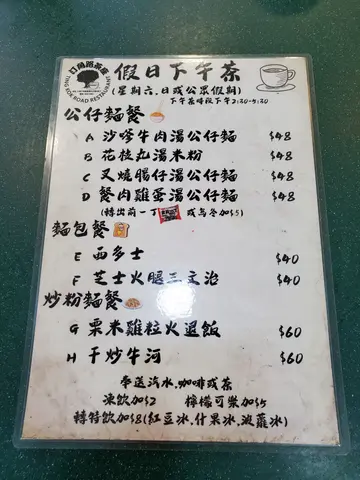 汀角路茶座
TING KOK ROAD RESTAURANT
假日下午茶
(星期六.日或公眾假期)
下午茶時段下午2:30-5:30
公仔麵餐
A 沙嗲牛肉湯公仔麵 $48
B 花枝丸湯米粉 $48
C 叉燒腸仔湯公仔麵 $48
D 餐肉雞蛋湯公仔麵 $48
(轉出前一丁 或烏冬加$5)
麵包餐
E 西多士 $40
F 芝士火腿三文治 $40
炒粉麵餐
G 粟米雞粒火腿飯 $60
H 干炒牛河 $60
奉送汽水.咖啡或茶
凍飲加$2 檸檬可樂加$5
轉特飲加$8(紅豆冰.什果冰.波蘿冰)